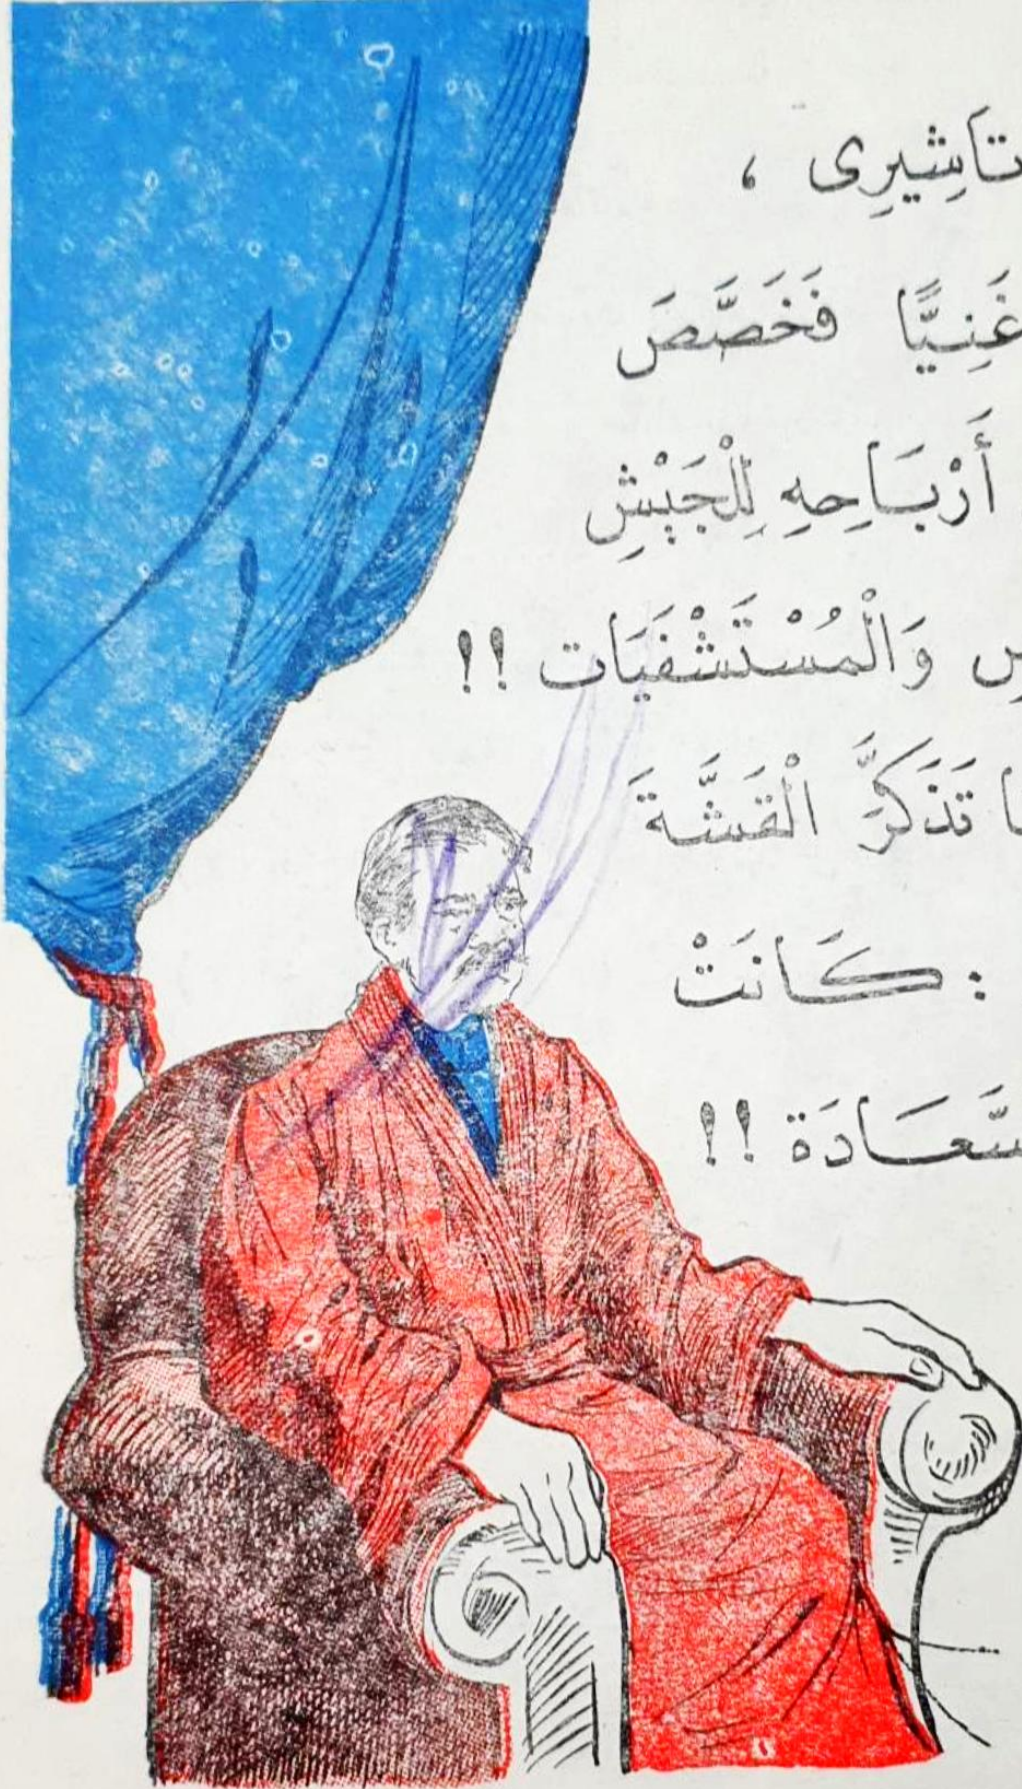 تَاشِيرِى ،
غَنِيًّا فَخَصَّصَ
أَرْبَاحِهِ لِلْجَيْشِ
وَالْمُسْتَشْفَيَات !!
تَذَكَّرَ الْقَشَّةَ
: كَانَتْ
!!